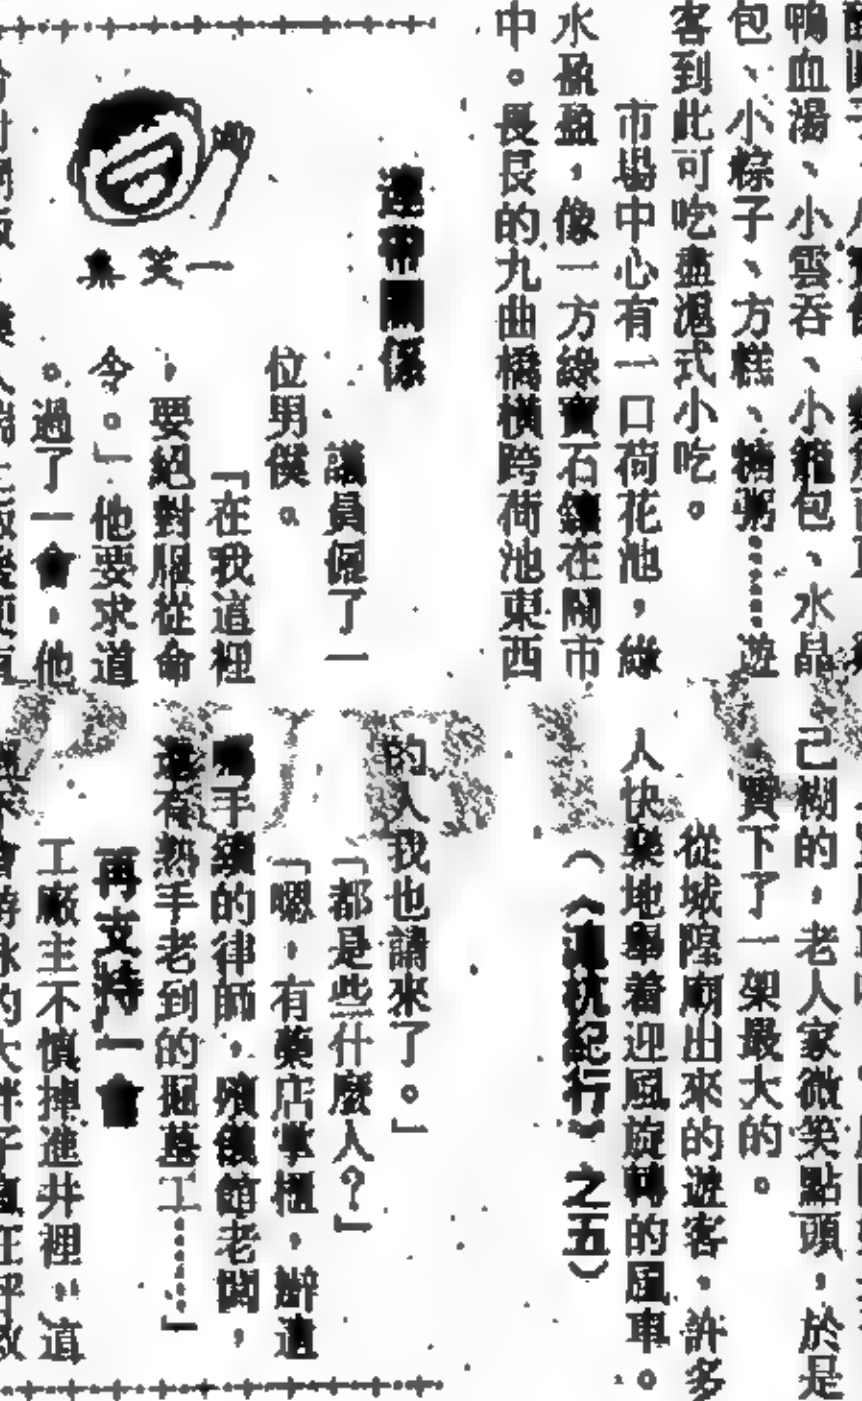 鴨血湯、小雲吞、小籠包、水晶
包、小粽子、方糕、糖粥……遊
客到此可吃盡滬式小吃。
市場中心有一口荷花池，綠
水盈盈，像一方綠寶石鑲在鬧市
中。長長的九曲橋橫跨荷池東西
己糊的，老人家微笑點頭，於是
買下了一架最大的。
從城隍廟出來的遊客，許多
人快樂地舉着迎風旋轉的風車。
（《滬杭紀行》之五）
一笑集
連帶關係
議員僱了一
位男僕。
「在我這裡
，要絕對服從命
令。」他要求道
。過了一會，他
的人我也請來了。」
「都是些什麼人？」
「嗯，有藥店掌櫃，辦遺
囑手續的律師，殯儀館老闆，
還有熟手老到的掘墓工……」
再支持一會
工廠主不慎掉進井裡。這